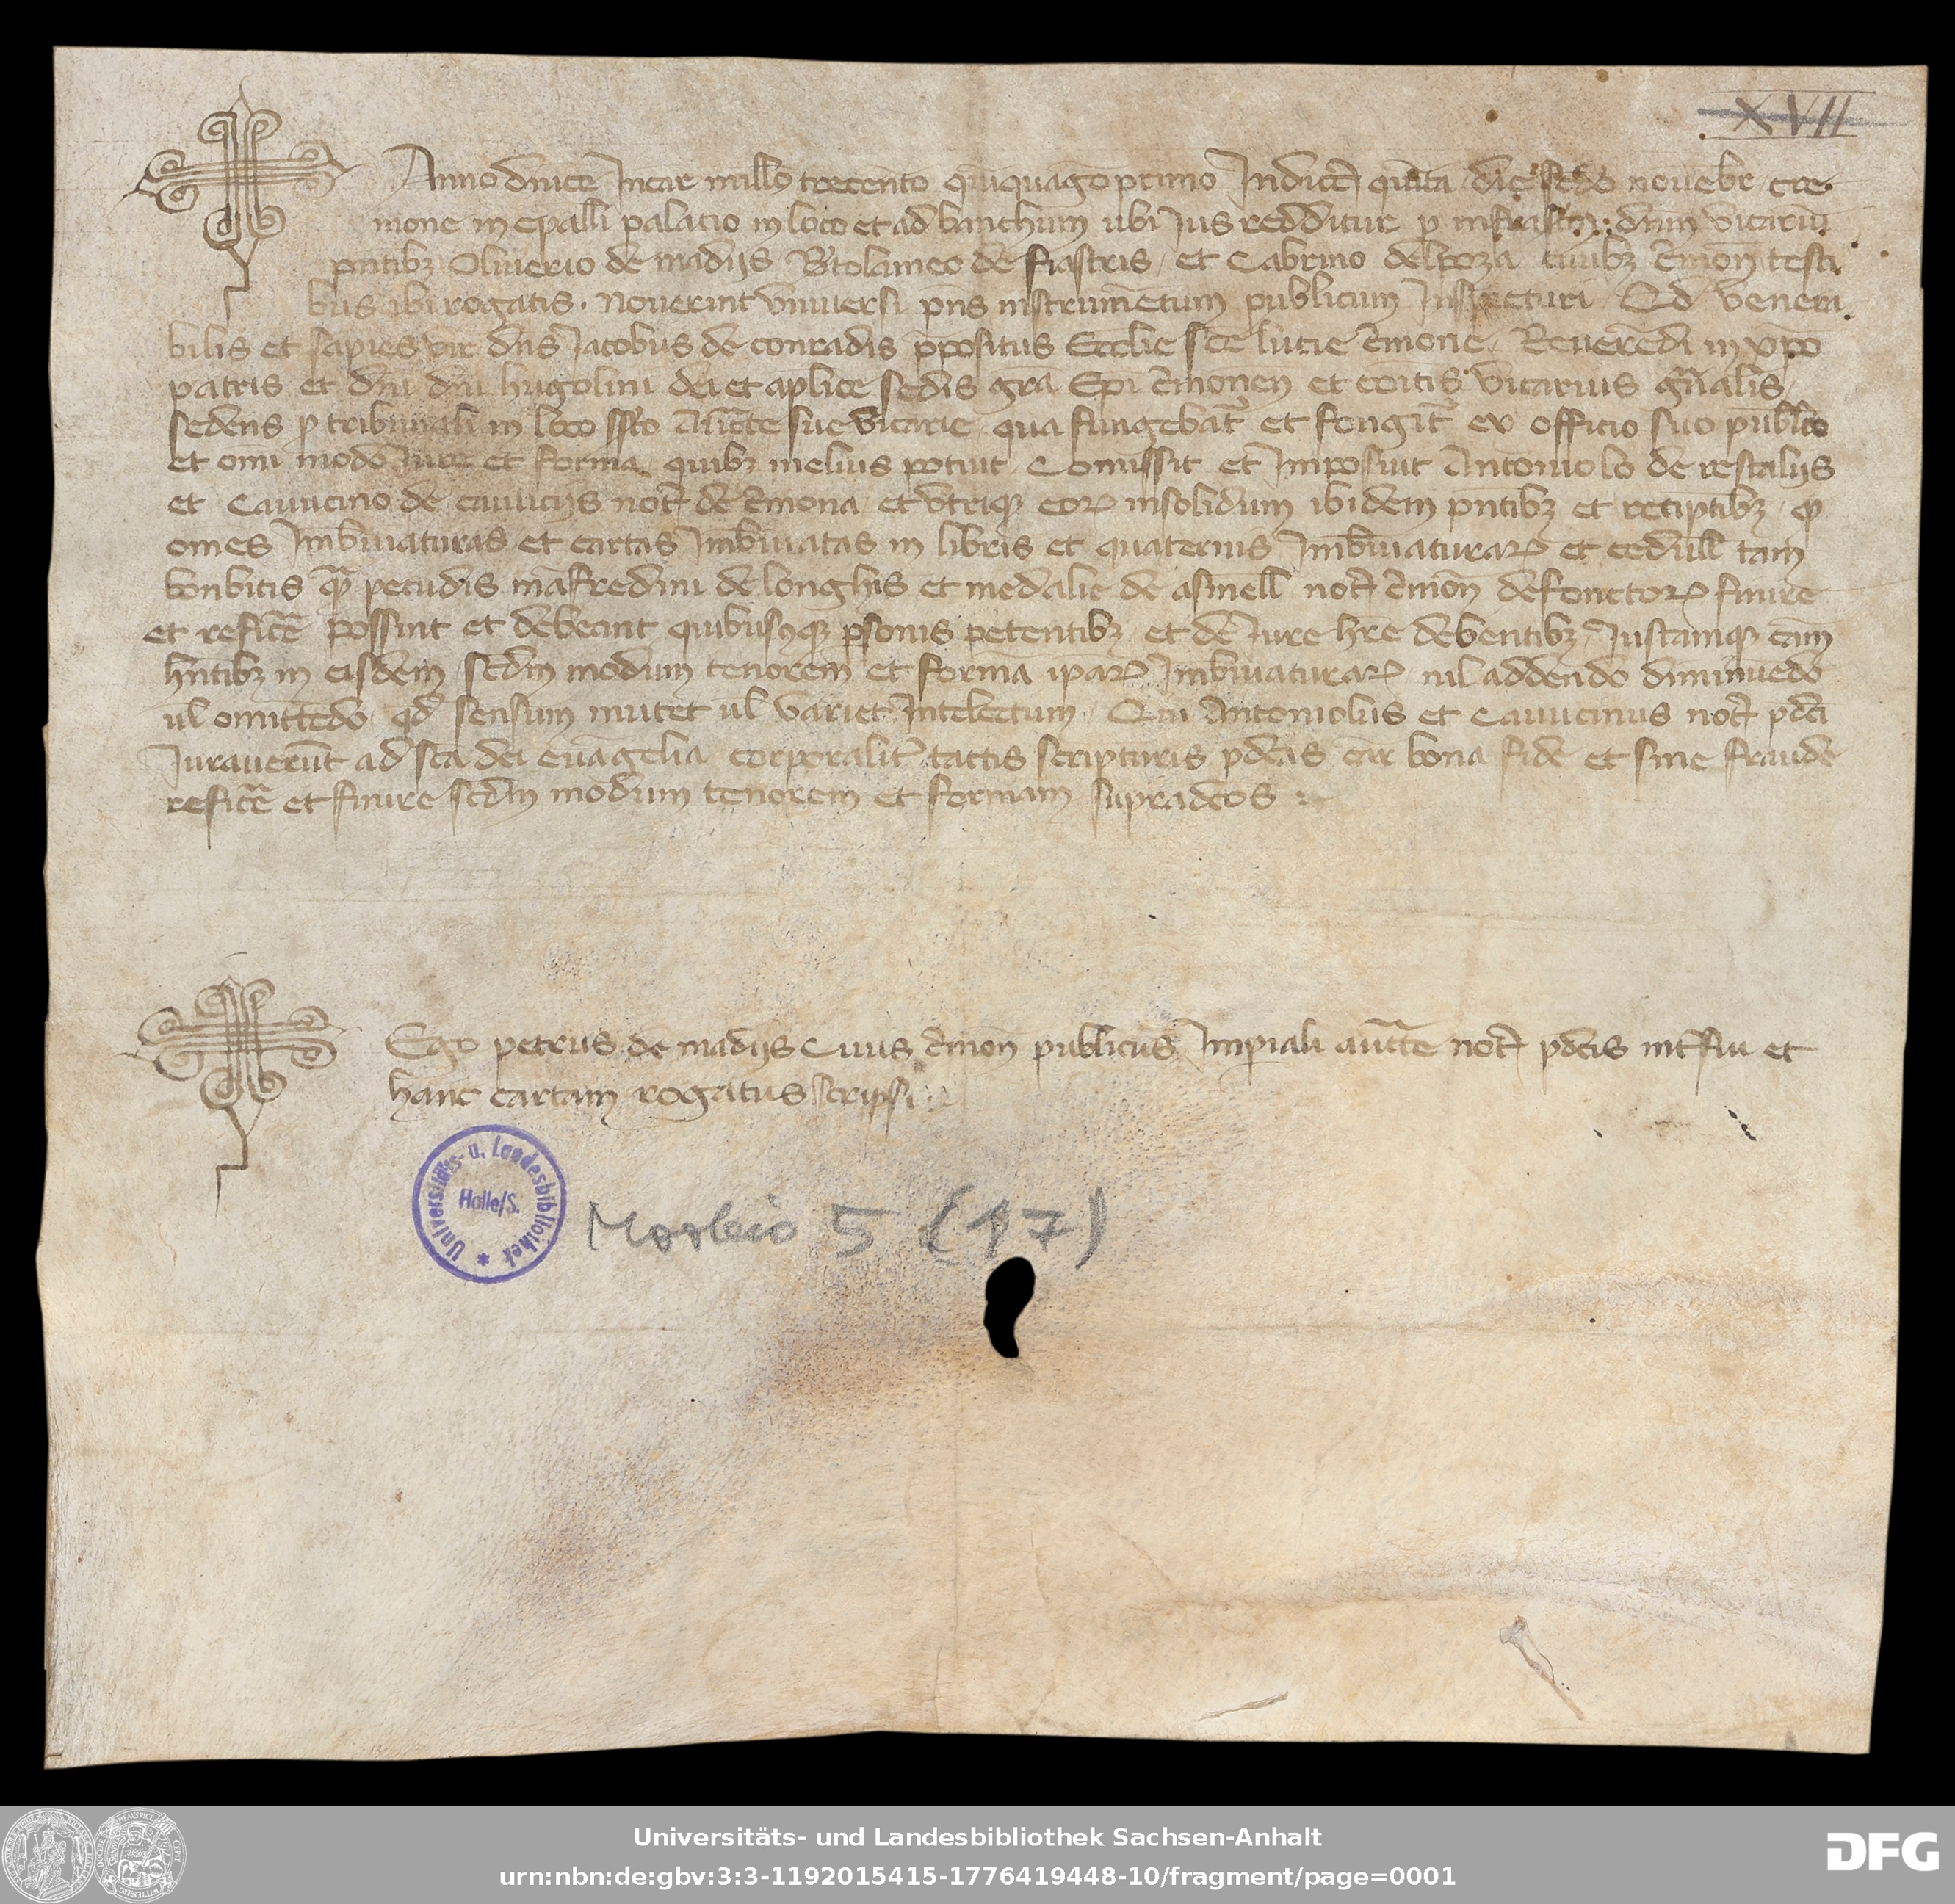 XVII
Anno dnice Incar millo trecento quiquago primo Indicce quinta die scdo novebr cre
mone in epalli palatio in loco et ad banchum ubi Ius redditur p infrascm dnm vicariu
pntibz Oliverio de madijs Btolameo de fiastris et Cabrino civibz Cmon testi
bus ibi rogatis. Noverint Universi pns instrumetum publicum Inspecturi Qd venera
bilis et sapies vir dns Iacobus de conradis ppositus Ecclie sce lucie Cmone Reveredi in xpo
patris et dni dni hugolini dei et aplice sedis gra Epi Cmonen et coitis vicarius gnalis
sedens p tribunali in loco ssto Auctte sue vicarie qua fungebat et fongit ex officio suo publico
et omi modo Iure et forma quibz melius potuit Comissit et Imposuit Antoniolo de restalijs
et Cavucino de cavucijs not de Cmona et utriqz eor insolidum ibidem pntibz et reciptibz q
omes Imbviaturas et cartas Imbviatas in libris et quaternis Imbviaturar et cedull tam
bonbicis qua pecudis mafredini de longhis et medalie de asinell not Cmon defonctor finire
et refice possint et debeant quibuscqz psonis petentibz et de Iure hre debentibz Iustamqz cam
hntibz in eisdem scdm modum tenorem et forma ipar Imbviaturar nil addendo diminuedo
ul omittedo qd sensum mutet ul variet Intelectum Qui Antoniolus et Cavucinus not pdci
Iuraverut ad sca dei evagelia corporalit tactis scripturis pdcas car bona fide et sine fraude
refice et finire scdm modum tenorem et formam supradcos
Ego petrus de madijs Civis Cmon publicus Impiali auctte not pdcis intfui et
hanc cartam rogatus scripsi
Universitäts- u. Landesbibliothek
Halle/S.
Morbio 5 (17)
Universitäts- und Landesbibliothek Sachsen-Anhalt
urn:nbn:de:gbv:3:3-1192015415-1776419448-10/fragment/page=0001
DFG